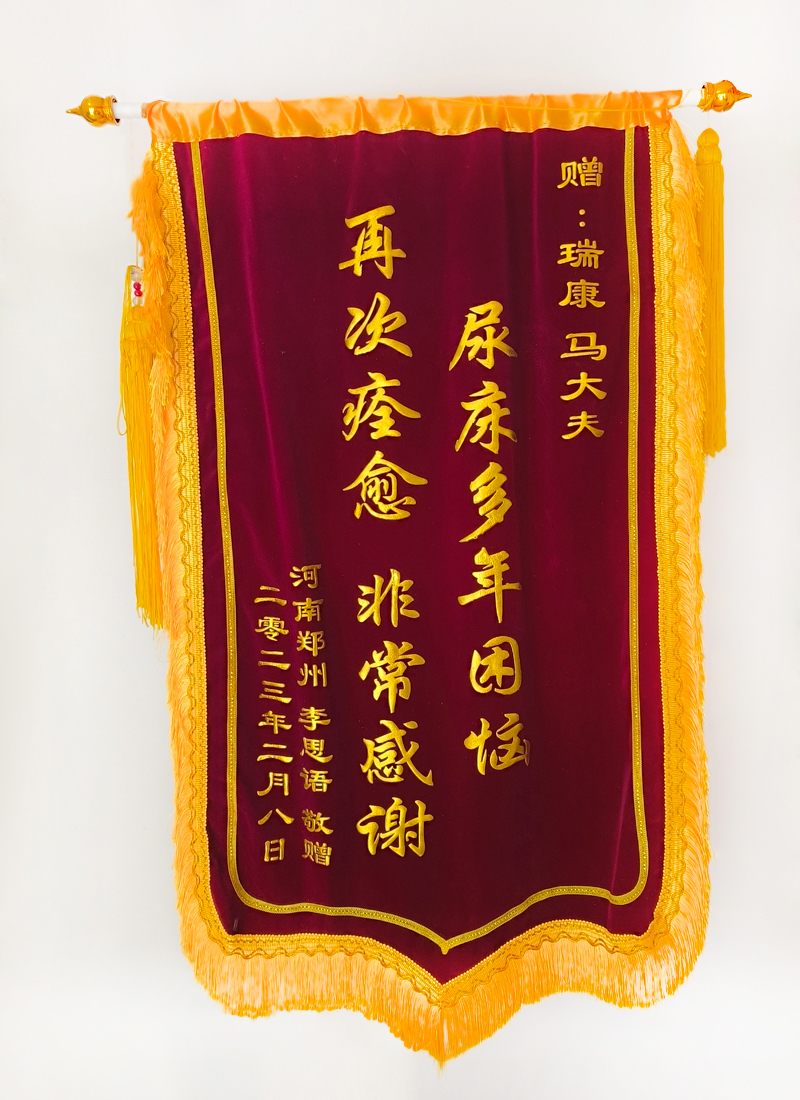 赠：瑞康 马大夫
尿床多年困恼
再次痊愈 非常感谢
河南郑州 李思语 敬赠
二零二三年二月八日